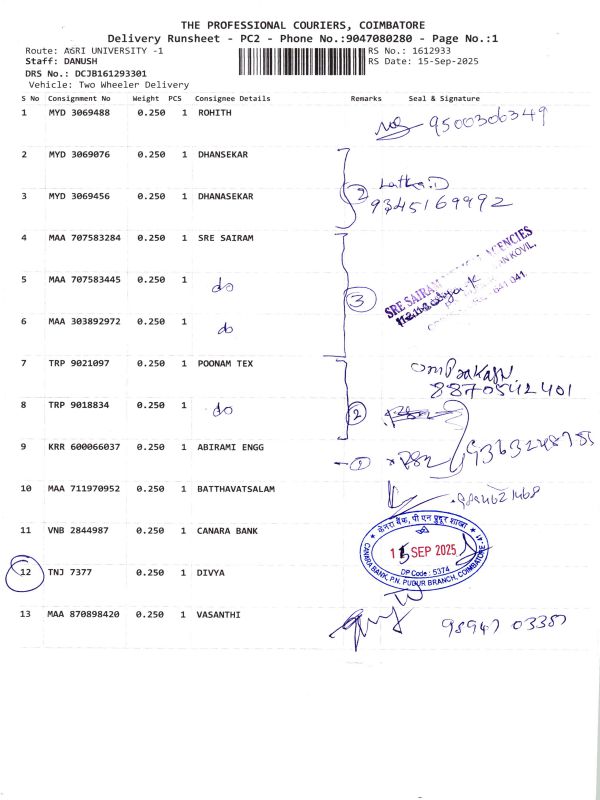 THE PROFESSIONAL COURIERS, COIMBATORE
Delivery Runsheet - PC2 - Phone No.:9047080280 - Page No.:1
Route: AGRI UNIVERSITY -1
RS No.: 1612933
Staff: DANUSH
RS Date: 15-Sep-2025
DRS No.: DCJB161293301
Vehicle: Two Wheeler Delivery
S No Consignment No Weight PCS Consignee Details Remarks Seal & Signature
1 MYD 3069488 0.250 1 ROHITH 9500306349
2 MYD 3069076 0.250 1 DHANSEKAR Latha.D
3 MYD 3069456 0.250 1 DHANASEKAR 2 9345169992
4 MAA 707583284 0.250 1 SRE SAIRAM
SRE SAIRAM AGENCIES
5 MAA 707583445 0.250 1 do 3
641 041
6 MAA 303892972 0.250 1 do
7 TRP 9021097 0.250 1 POONAM TEX OmPrakash
8870542401
8 TRP 9018834 0.250 1 do 2
9 KRR 600066037 0.250 1 ABIRAMI ENGG 1
10 MAA 711970952 0.250 1 BATTHAVATSALAM
11 VNB 2844987 0.250 1 CANARA BANK
केनरा बैंक, पी एन पुदूर शाखा
15 SEP 2025
DP Code : 5374
CANARA BANK, P.N. PUDUR BRANCH, COIMBATORE - 41
12 TNJ 7377 0.250 1 DIVYA
13 MAA 870898420 0.250 1 VASANTHI 98947 03387